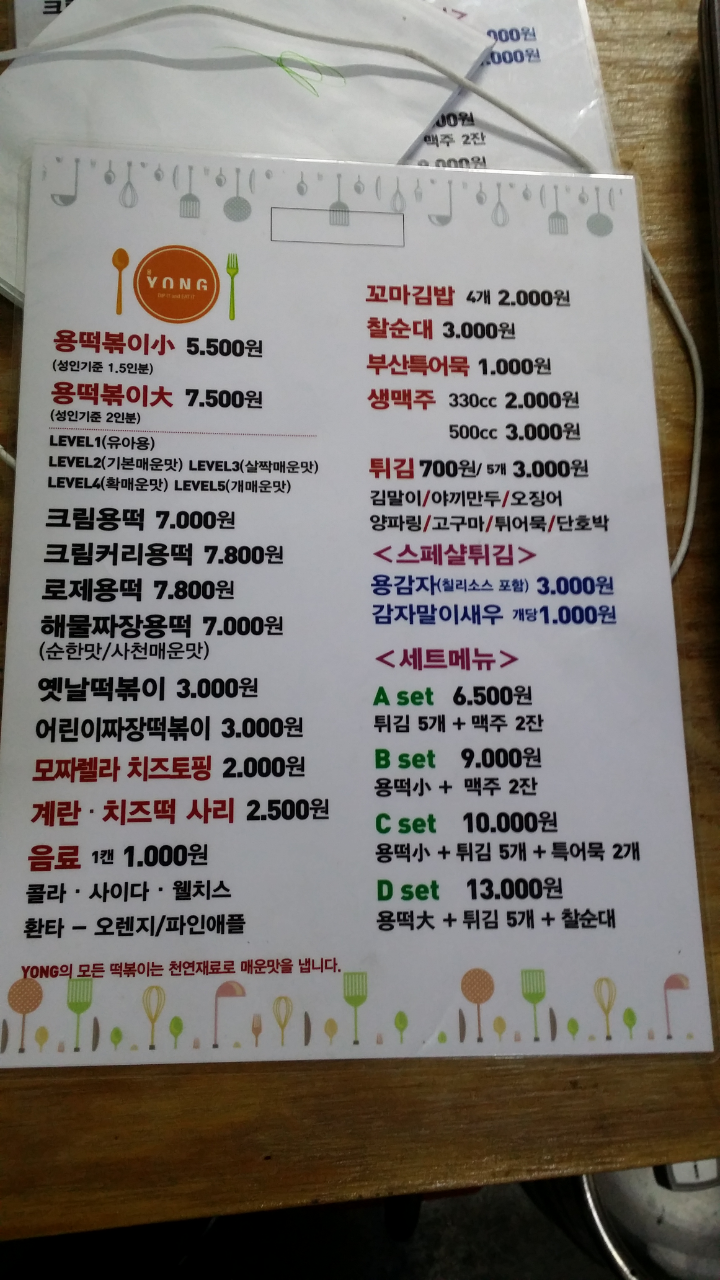 000원
.000원
00원
맥주 2잔
YONG
용떡볶이小 5.500원
(성인기준 1.5인분)
용떡볶이大 7.500원
(성인기준 2인분)
LEVEL1(유아용)
LEVEL2(기본매운맛) LEVEL3(살짝매운맛)
LEVEL4(확매운맛) LEVEL5(개매운맛)
크림용떡 7.000원
크림커리용떡 7.800원
로제용떡 7.800원
해물짜장용떡 7.000원
(순한맛/사천매운맛)
옛날떡볶이 3.000원
어린이짜장떡볶이 3.000원
모짜렐라 치즈토핑 2.000원
계란 · 치즈떡 사리 2.500원
음료 1캔 1.000원
콜라 · 사이다 · 웰치스
환타 – 오렌지/파인애플
YONG의 모든 떡볶이는 천연재료로 매운맛을 냅니다.
꼬마김밥 4개 2.000원
찰순대 3.000원
부산특어묵 1.000원
생맥주 330cc 2.000원
500cc 3.000원
튀김 700원/ 5개 3.000원
김말이/야끼만두/오징어
양파링/고구마/튀어묵/단호박
<스페샬튀김>
용감자(칠리소스 포함) 3.000원
감자말이새우 개당1.000원
<세트메뉴>
A set 6.500원
튀김 5개 + 맥주 2잔
B set 9.000원
용떡小 + 맥주 2잔
C set 10.000원
용떡小 + 튀김 5개 + 특어묵 2개
D set 13.000원
용떡大 + 튀김 5개 + 찰순대